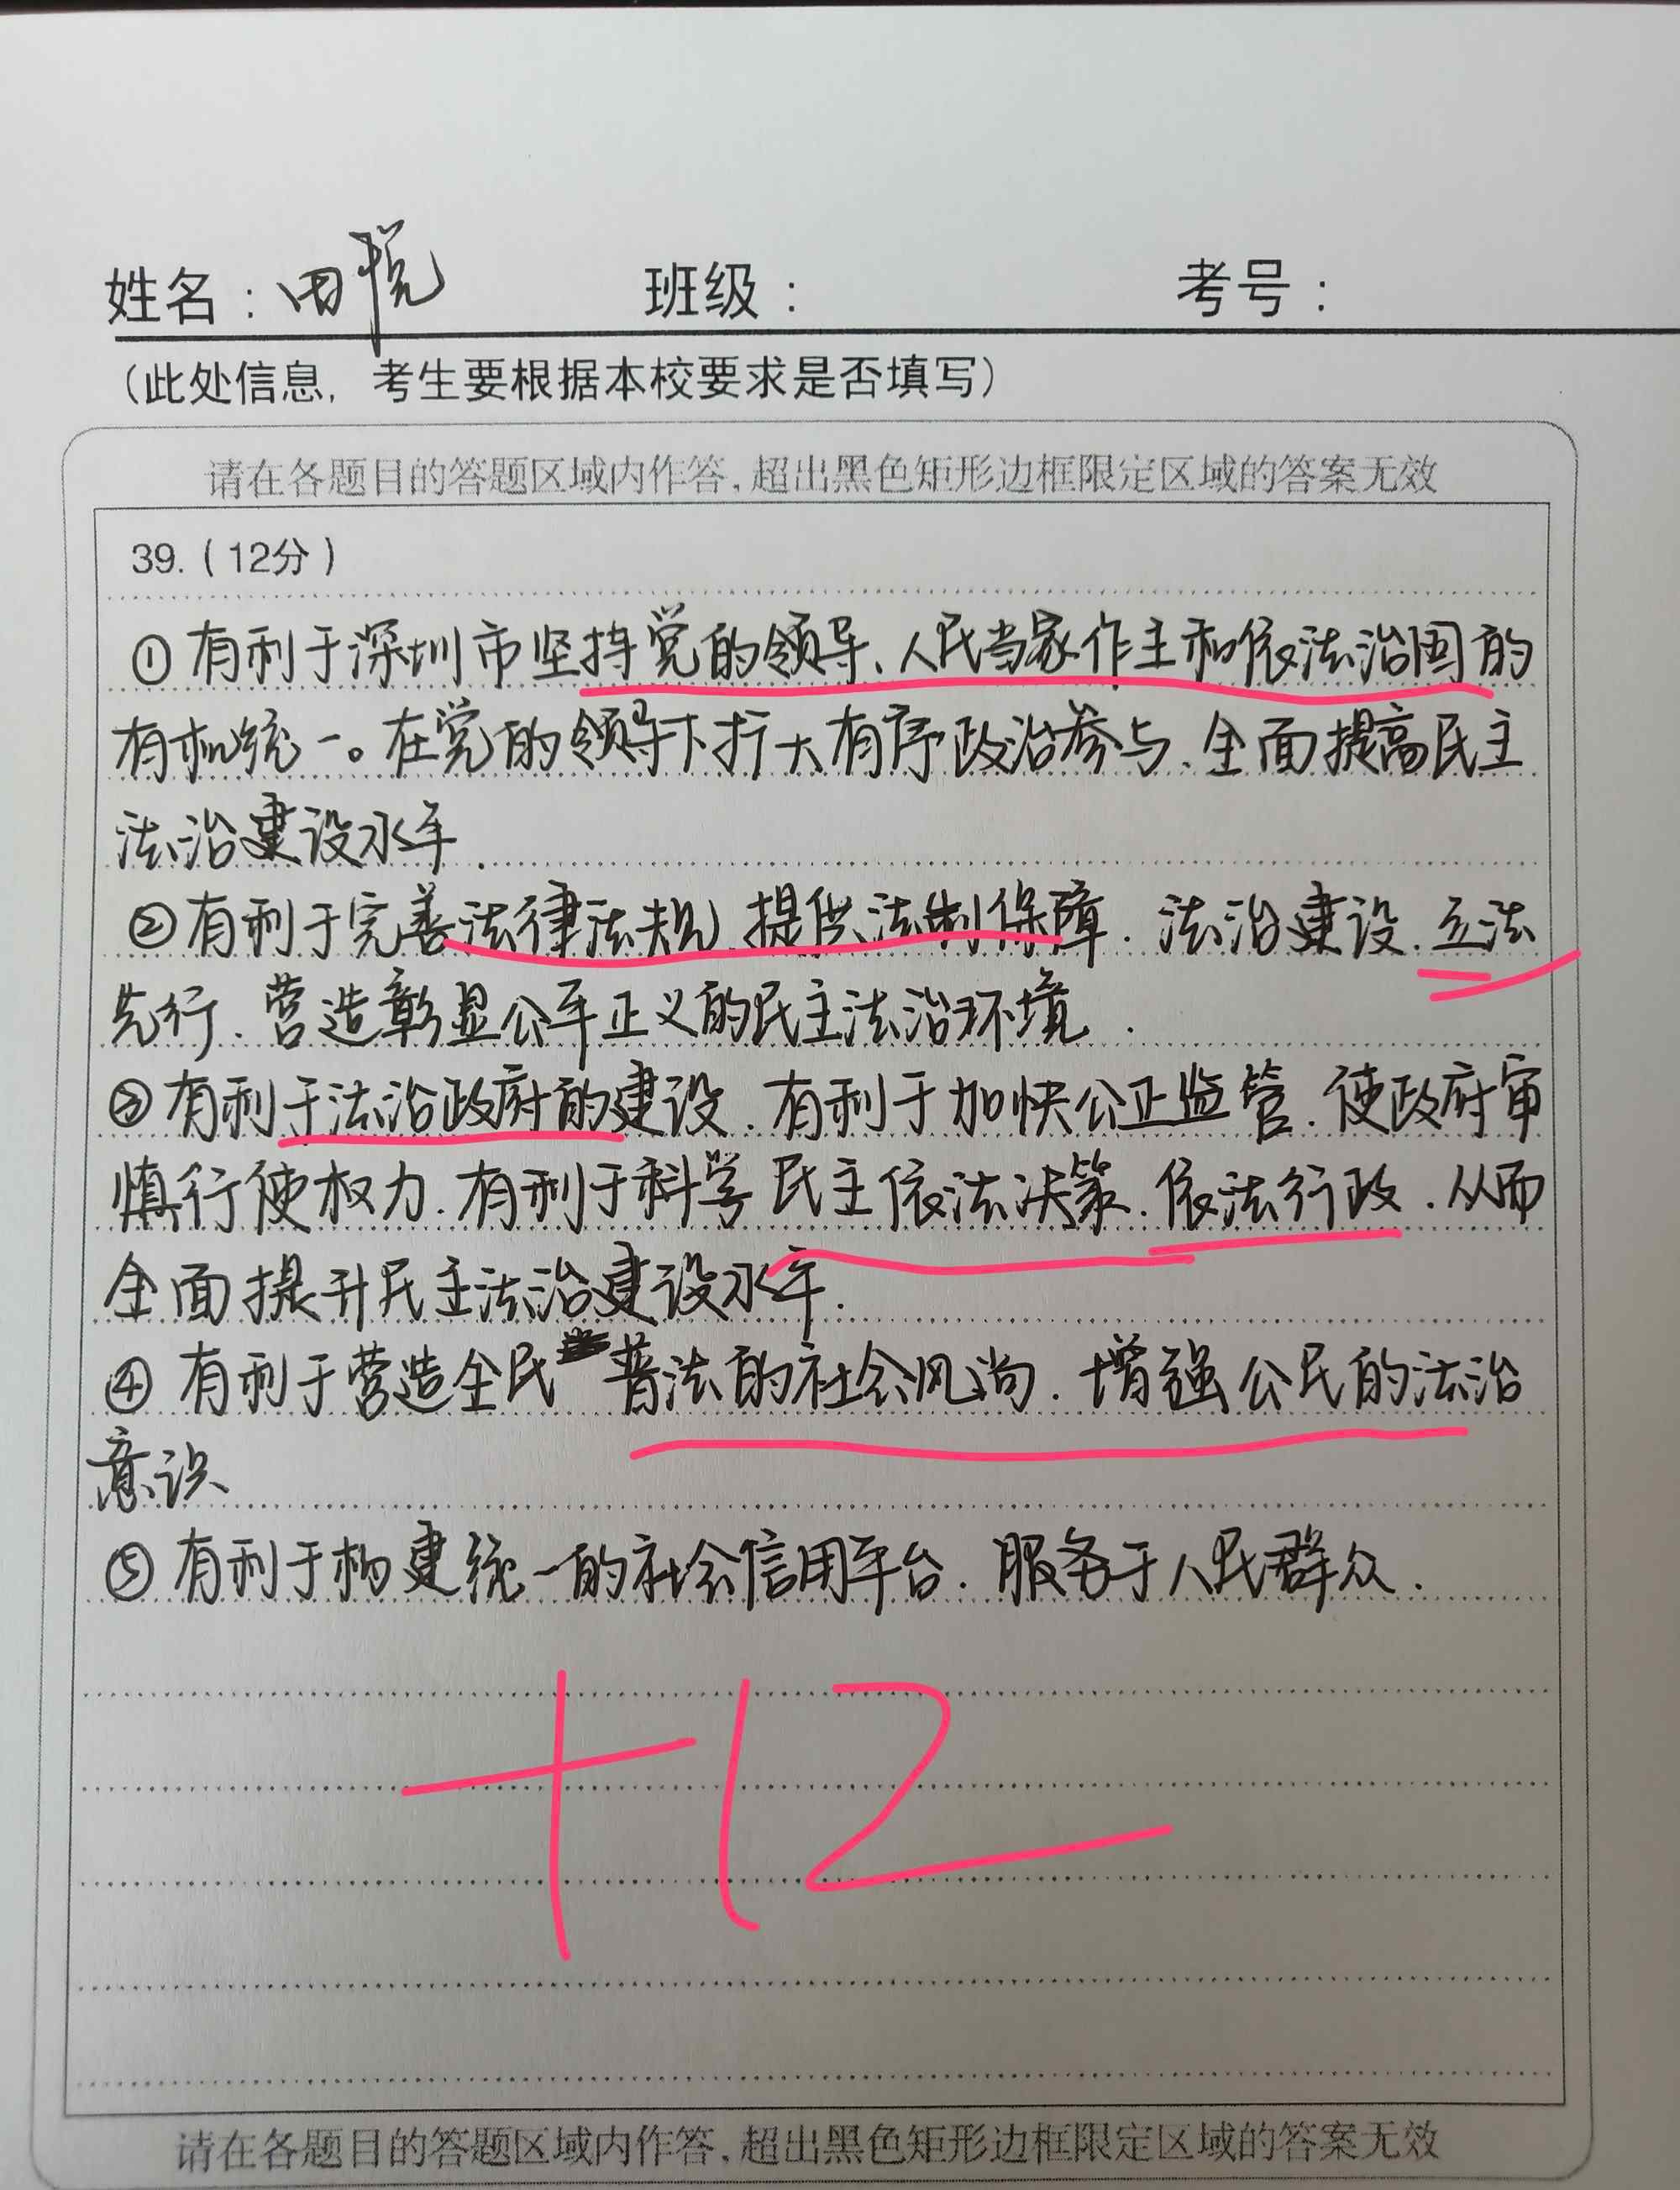 姓名：田悦 班级： 考号：
（此处信息，考生要根据本校要求是否填写）
请在各题目的答题区域内作答，超出黑色矩形边框限定区域的答案无效
39.（12分）
①有利于深圳市坚持党的领导、人民当家作主和依法治国的
有机统一。在党的领导下扩大有序政治参与、全面提高民主
法治建设水平.
②有利于完善法律法规、提供法制保障. 法治建设、立法
先行、营造彰显公平正义的民主法治环境.
③有利于法治政府的建设、有利于加快公正监管、使政府审
慎行使权力、有利于科学民主依法决策、依法行政、从而
全面提升民主法治建设水平.
④有利于营造全民普法的社会风尚、增强公民的法治
意识
⑤有利于构建统一的社会信用平台、服务于人民群众.
+12
请在各题目的答题区域内作答，超出黑色矩形边框限定区域的答案无效